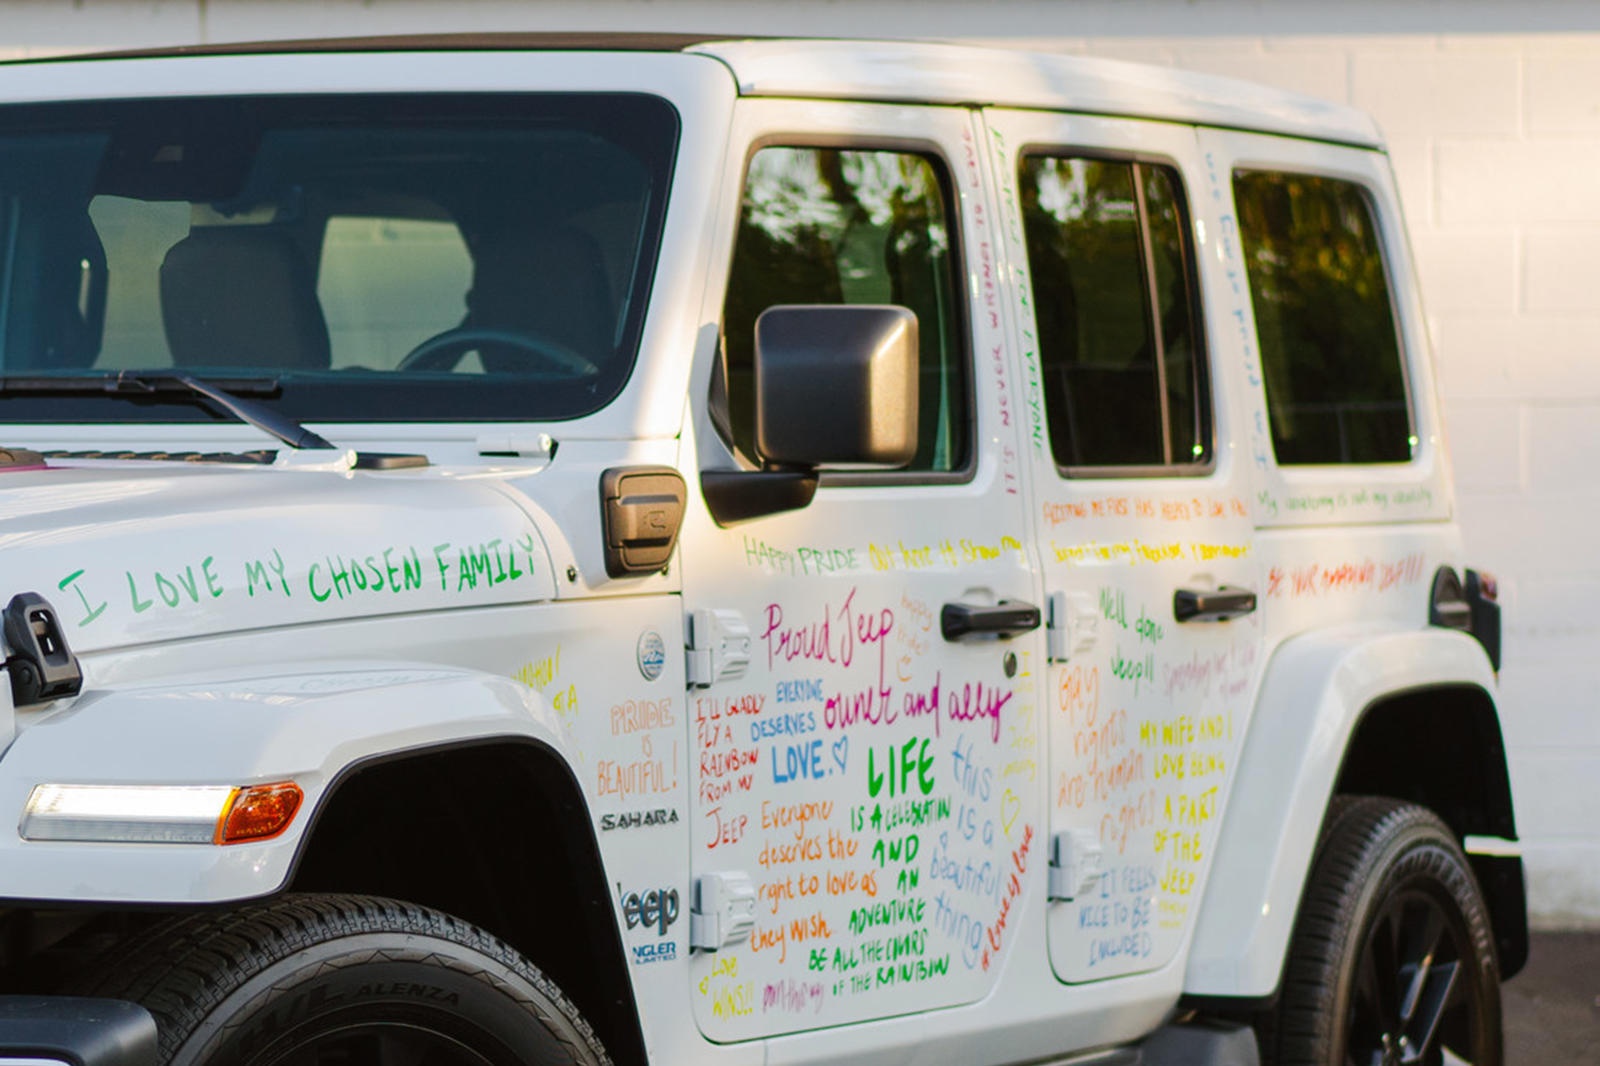 I LOVE MY CHOSEN FAMILY
IT'S NEVER WRONG TO LOVE
LOVE EVERYONE
HAPPY PRIDE
Out here to show my
Proud Jeep
owner and ally
happy
pride
PRIDE
IS
BEAUTIFUL!
SAHARA
Jeep
I'LL GLADLY
FLY A
RAINBOW
FROM MY
JEEP
EVERYONE
DESERVES
LOVE.
Everyone
deserves the
right to love as
they wish.
LIFE
IS A CELEBRATION
AND
AN
ADVENTURE
BE ALL THE COLORS
OF THE RAINBOW
this
is a
beautiful
thing
#loveislove
Love
WINS!!
ACCEPTING ME FIRST HAS HELPED TO LOVE YOU
My anatomy is not my identity
BE YOUR AMAZING SELF!!!!
Well done
Jeep!!
Gay
rights
are human
rights
MY WIFE AND I
LOVE BEING
A PART
OF THE
JEEP
IT FEELS
NICE TO BE
INCLUDED
ALENZA